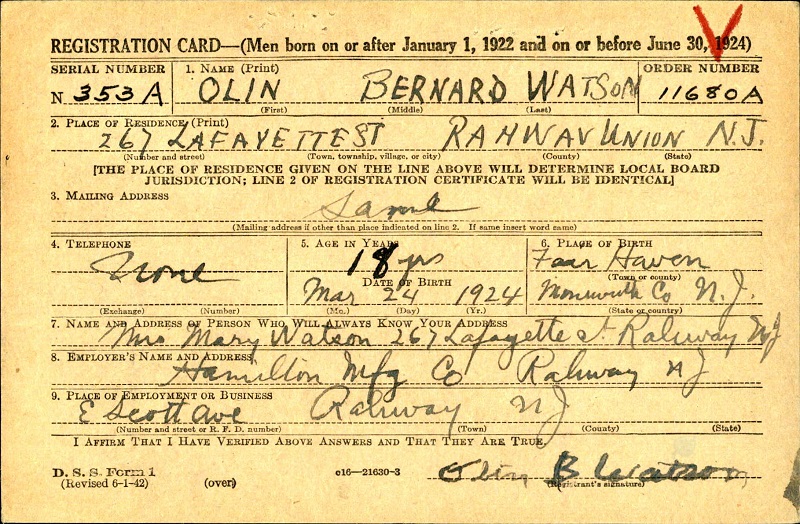 REGISTRATION CARD—(Men born on or after January 1, 1922 and on or before June 30, 1924)
SERIAL NUMBER 1. NAME (Print) ORDER NUMBER
N 353A OLIN BERNARD WATSON 11680A
(First) (Middle) (Last)
2. PLACE OF RESIDENCE (Print)
267 LAFAYETTE ST RAHWAY UNION N.J.
(Number and street) (Town, township, village, or city) (County) (State)
[THE PLACE OF RESIDENCE GIVEN ON THE LINE ABOVE WILL DETERMINE LOCAL BOARD
JURISDICTION; LINE 2 OF REGISTRATION CERTIFICATE WILL BE IDENTICAL]
3. MAILING ADDRESS
Same
(Mailing address if other than place indicated on line 2. If same insert word same)
4. TELEPHONE 5. AGE IN YEARS 6. PLACE OF BIRTH
None 18 yrs Fair Haven
(Town or county)
DATE OF BIRTH
Mar 24 1924 Monmouth Co N.J.
(Exchange) (Number) (Mo.) (Day) (Yr.) (State or country)
7. NAME AND ADDRESS OF PERSON WHO WILL ALWAYS KNOW YOUR ADDRESS
Mrs Mary Watson 267 Lafayette St Rahway NJ
8. EMPLOYER'S NAME AND ADDRESS
Hamilton Mfg Co Rahway NJ
9. PLACE OF EMPLOYMENT OR BUSINESS
E Scott Ave Rahway NJ
(Number and street or R. F. D. number) (Town) (County) (State)
I AFFIRM THAT I HAVE VERIFIED ABOVE ANSWERS AND THAT THEY ARE TRUE.
D. S. S. Form 1 c16—21630-3 Olin B Watson
(Revised 6-1-42) (over) (Registrant's signature)